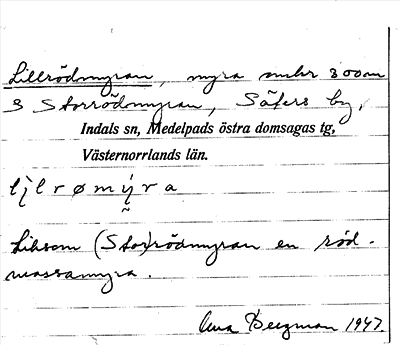 Lillrödmyran, myra omkr 300 m
S Storrödmyran, Säters by,
Indals sn, Medelpads östra domsagas tg,
Västernorrlands län.
Liksom (Stor)rödmyran en röd-
mossamyra.
Anna Bergman 1947.